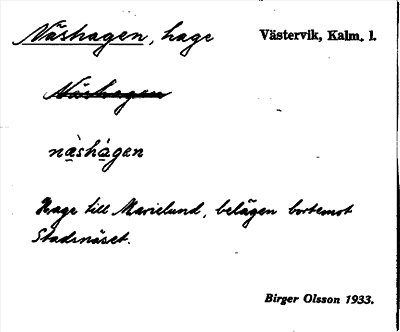 Näshagen, hage Västervik, Kalm. l.
Näshagen
nä̀shá̱gen
Hage till Marielund, belägen bortemot
Stadsnäset.
Birger Olsson 1933.